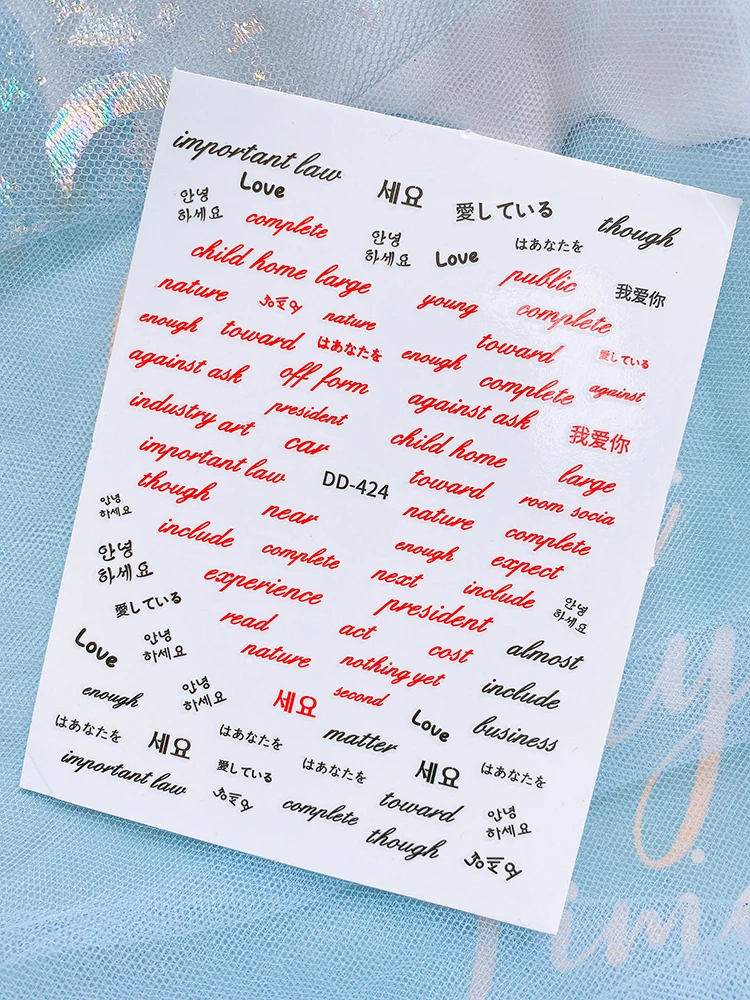 important law
Love
세요
愛している
though
안녕
하세요
complete
안녕
하세요
Love
はあなたを
child home large
public
我爱你
nature
nature
young
complete
enough toward はあなたを
enough
toward
愛している
against ask
off form
complete
against
industry art
president
against ask
我爱你
important law
car
child home
large
though
DD-424
toward
room socia
안녕
하세요
near
nature
complete
include
complete
enough
expect
안녕
하세요
experience
next
include
안녕
하세요
愛している
president
read
act
cost
almost
Love
안녕
하세요
nature
nothing yet
include
enough
안녕
하세요
세요
second
Love
business
はあなたを
세요
はあなたを
matter
はあなたを
important law
愛している
はあなたを
세요
complete
toward
안녕
하세요
though